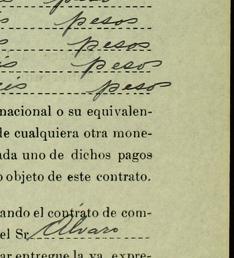 pesos
pesos
pesos
pesos
pesos
nacional o su equivalen-
de cualquiera otra mone-
ada uno de dichos pagos
o objeto de este contrato.
ando el contrato de com-
el Sr. Alvaro
ar entregue la ya expre-